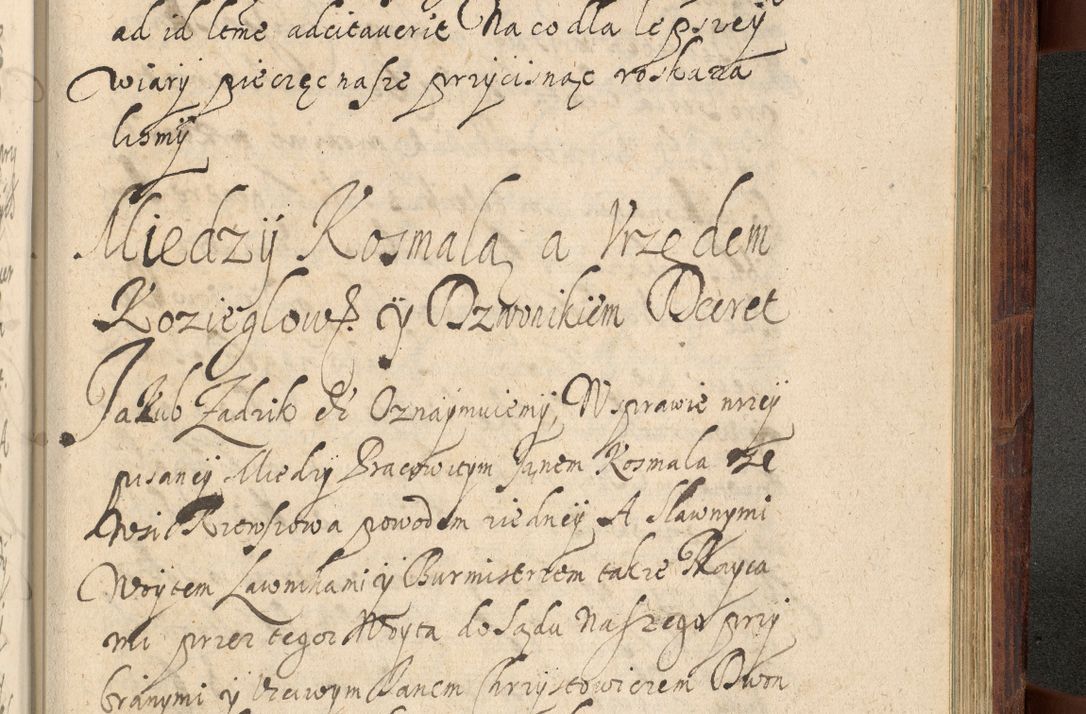 ad id ltme adcitaverit Na co dla lepszeÿ
wiarÿ pieczęc nasze przÿcisnąc roskaza
lismÿ
Miedzÿ Kosmalą a Vrzędem
Kozieglow: ÿ Dzwonikiem Decret
Jakub Zadzik etc Oznaÿmuiemÿ, W sprawie nizeÿ
pisaneÿ Miedzÿ Pracowitym Janem Kosmala ze
wsi powodem ziedneÿ A Slawnymi
Woytem Lawnikami ÿ Burmistrzem takze Raÿca
mi przez tegoz Woÿta do Sądu Naszego przÿ
branymi ÿ Vczciwym Panem Chrzÿstowiczem Dwon